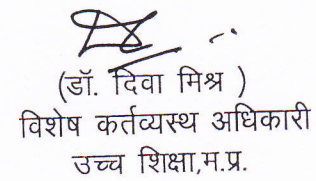 (डॉ. दिवा मिश्र )
विशेष कर्तव्यस्थ अधिकारी
उच्च शिक्षा,म.प्र.